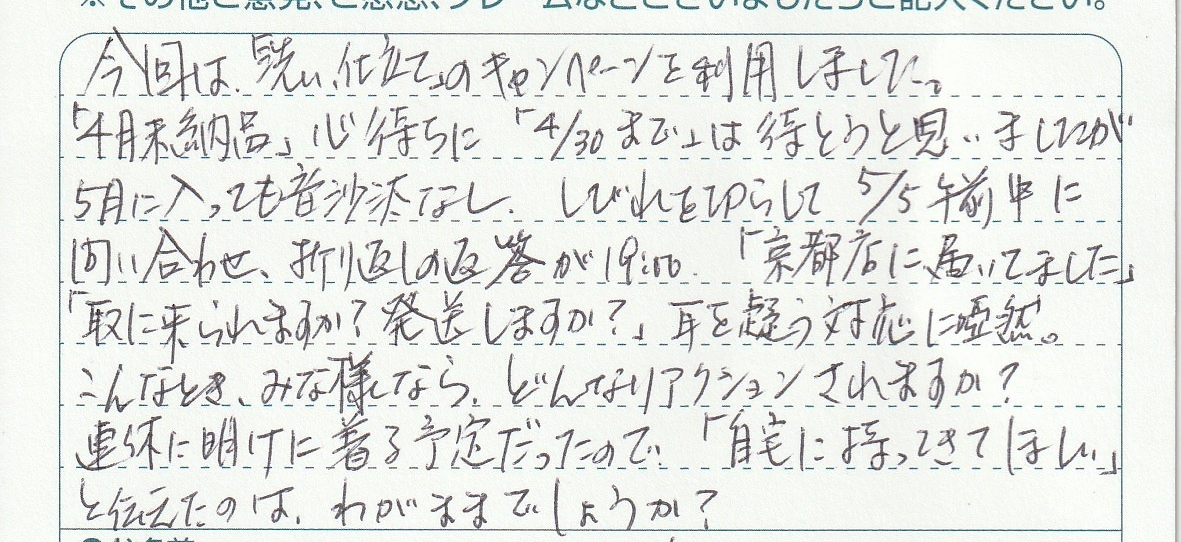 ※その他ご意見、ご感想、クレームなどございましたらご記入ください。
今回は、「洗い、仕立て」のキャンペーンを利用しました。
「4月末納品」心待ちに「4/30まで」は待とうと思いましたが
5月に入っても音沙汰なし、しびれを切らして 5/5 午前中に
問い合わせ、折り返しの返答が19:00、「京都店に、届いてました」
「取に来られますか?発送しますか?」耳を疑う対応に唖然。
こんなとき、みな様なら、どんなリアクションされますか?
連休に明けに着る予定だったので、「自宅に持ってきてほしい」
と伝えたのは、わがままでしょうか?